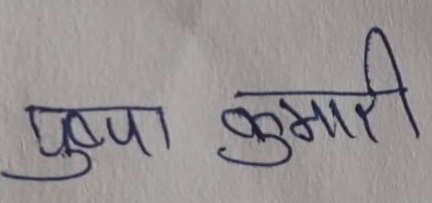 पुष्पा कुमारी